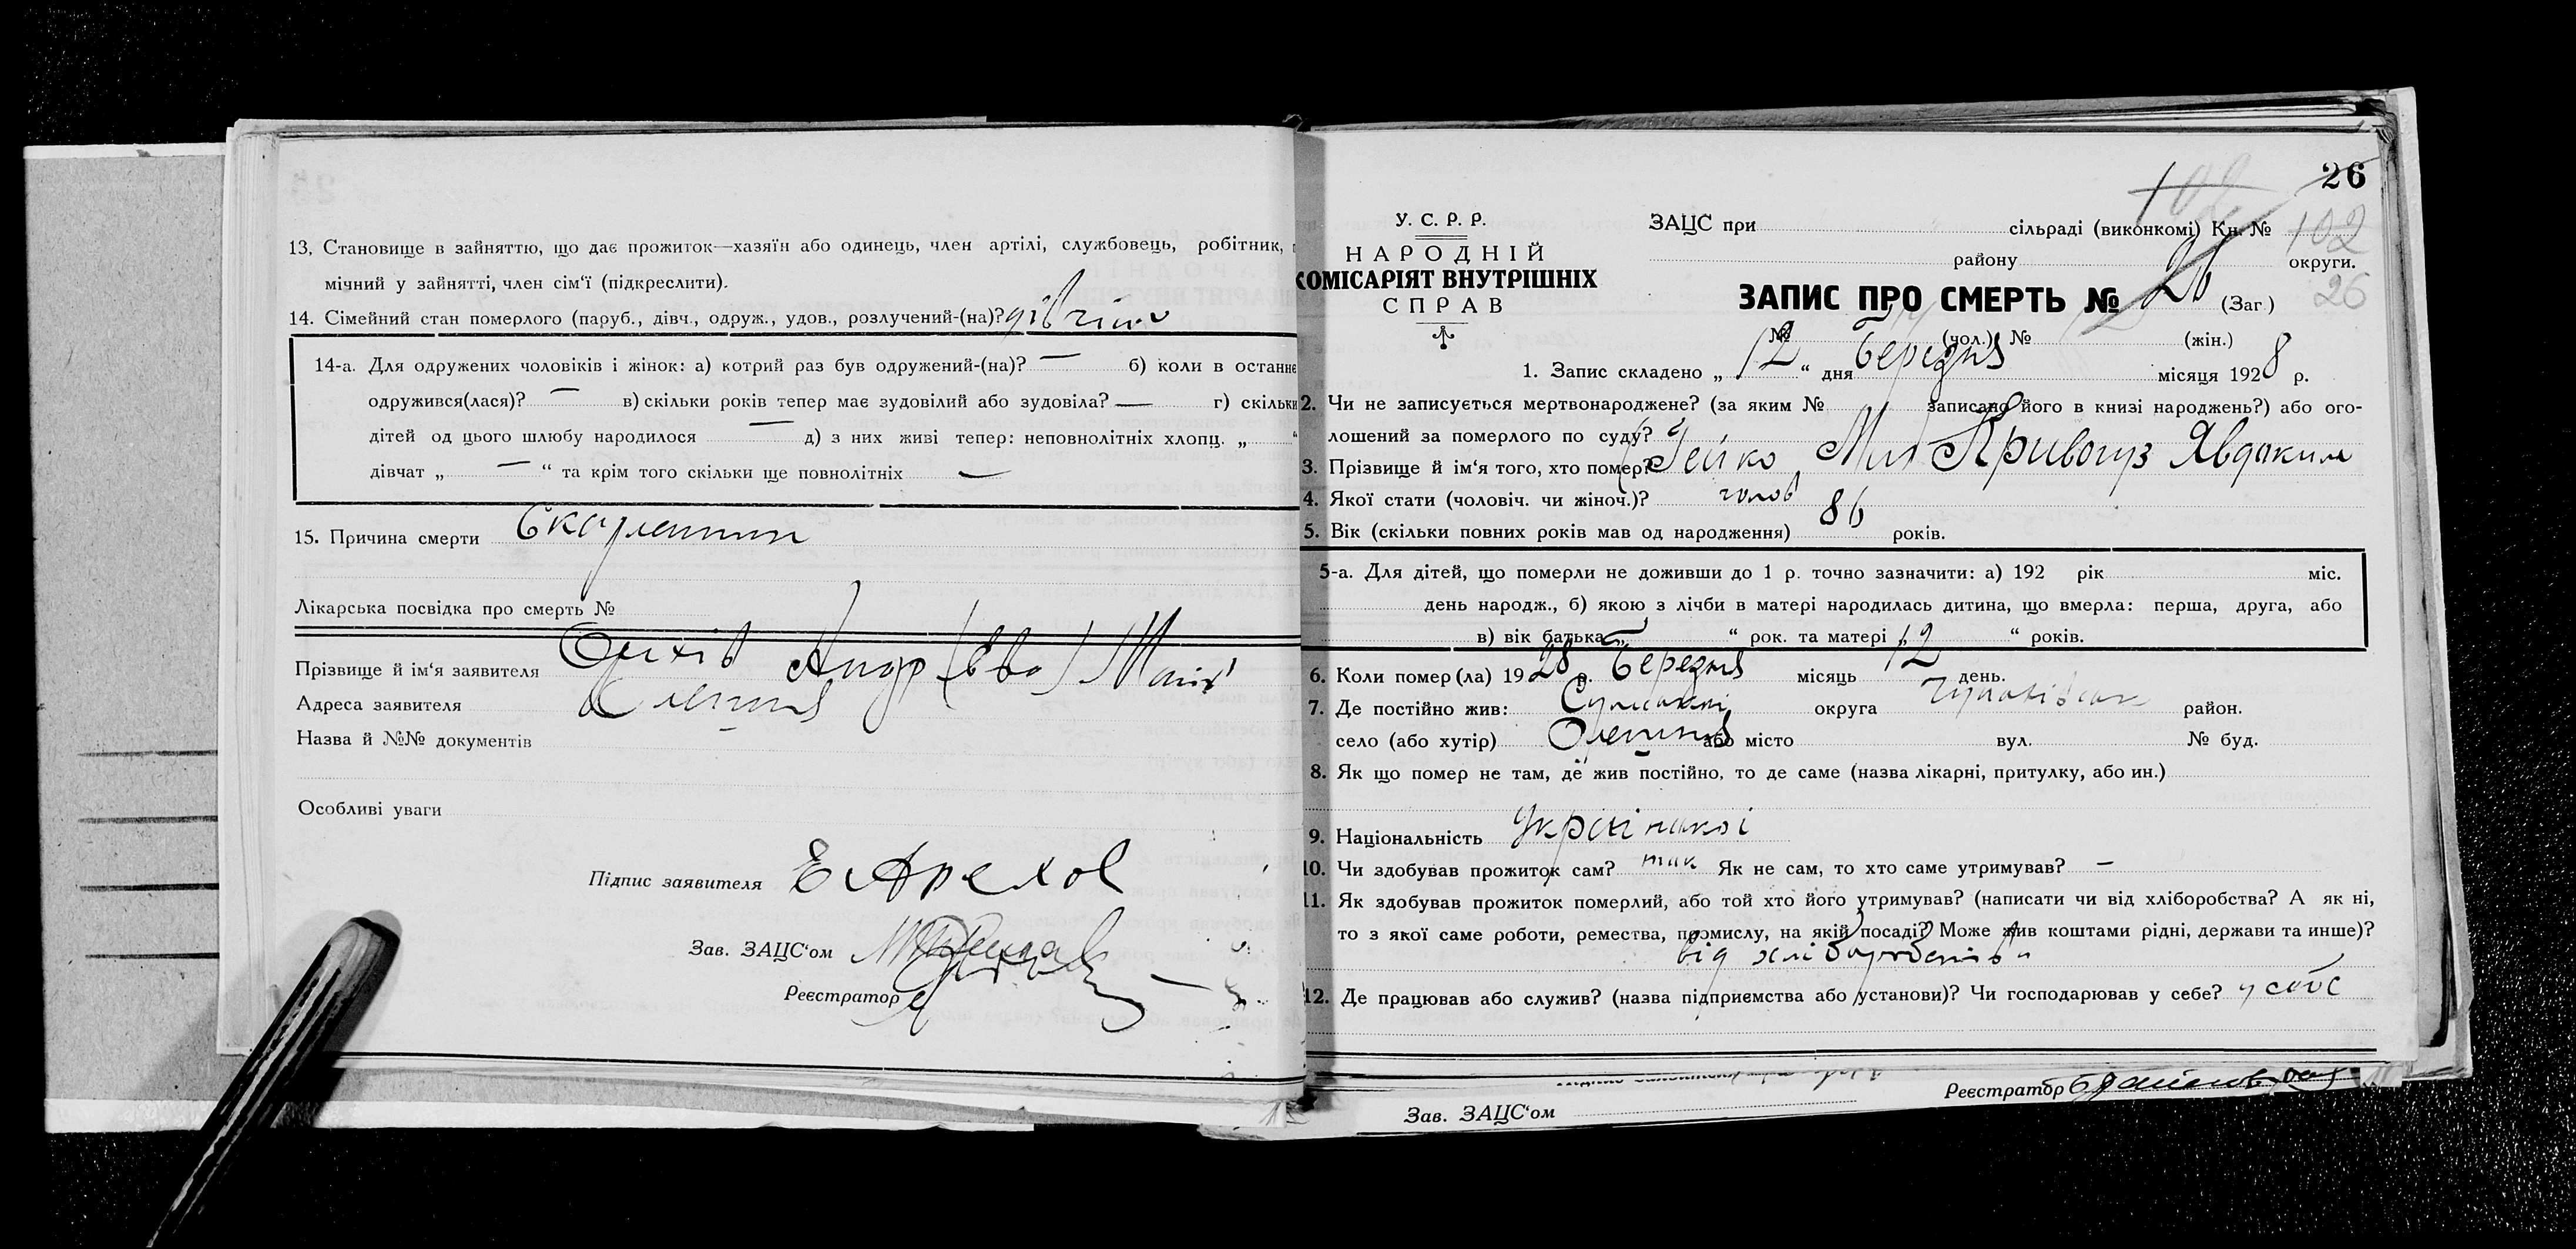 13. Становище в зайняттю, що дає прожиток—хазяїн або одинець, член артілі, службовець, робітник,
мічний у зайнятті, член сім'ї (підкреслити).
14. Сімейний стан померлого (паруб., дівч., одруж., удов., розлучений-(на)?
14-а. Для одружених чоловіків і жінок: а) котрий раз був одружений-(на)? — б) коли в останнє
одружився(лася)? — в) скільки років тепер має зудовілий або зудовіла? — г) скільки
дітей од цього шлюбу народилося — д) з них живі тепер: неповнолітніх хлопц. „ “
дівчат „ — “ та крім того скільки ще повнолітніх —
15. Причина смерти Скарлятина
Лікарська посвідка про смерть №
Прізвище й ім'я заявителя
Адреса заявителя Олешня
Назва й №№ документів
Особливі уваги
Підпис заявителя Е Арехов
Зав. ЗАЦС'ом
Реєстратор
26
102
26
У. С. Р. Р.
НАРОДНІЙ
КОМІСАРІЯТ ВНУТРІШНІХ
СПРАВ
ЗАЦС при сільраді (виконкомі) Кн. №
району округи.
ЗАПИС ПРО СМЕРТЬ № 26 (Заг.)
№ (чол.) № (жін.)
1. Запис складено „ 12 “ дня Березня місяця 1928 р.
2. Чи не записується мертвонароджене? (за яким № записано його в книзі народжень?) або ого-
лошений за померлого по суду?
3. Прізвище й ім'я того, хто помер? Гейко Кривогуз Явдоким
4. Якої стати (чоловіч. чи жіноч.)? чолов
5. Вік (скільки повних років мав од народження) 86 років.
5-а. Для дітей, що померли не доживши до 1 р. точно зазначити: а) 192 рік міс.
день народж., б) якою з лічби в матері народилась дитина, що вмерла: перша, друга, або
в) вік батька „ “ рок. та матері „ “ років.
6. Коли помер(ла) 1928 р. Березня місяць 12 день.
7. Де постійно жив: округа район.
село (або хутір) Олешня або місто вул. № буд.
8. Як що помер не там, де жив постійно, то де саме (назва лікарні, притулку, або ин.)
9. Національність Українскої
10. Чи здобував прожиток сам? так Як не сам, то хто саме утримував? —
11. Як здобував прожиток померлий, або той хто його утримував? (написати чи від хліборобства? А як ні,
то з якої саме роботи, ремества, промислу, на якій посаді? Може жив коштами рідні, держави та инше)?
від хліборобства
12. Де працював або служив? (назва підприємства або установи)? Чи господарював у себе? у собе
Реєстратор
Зав. ЗАЦС'ом